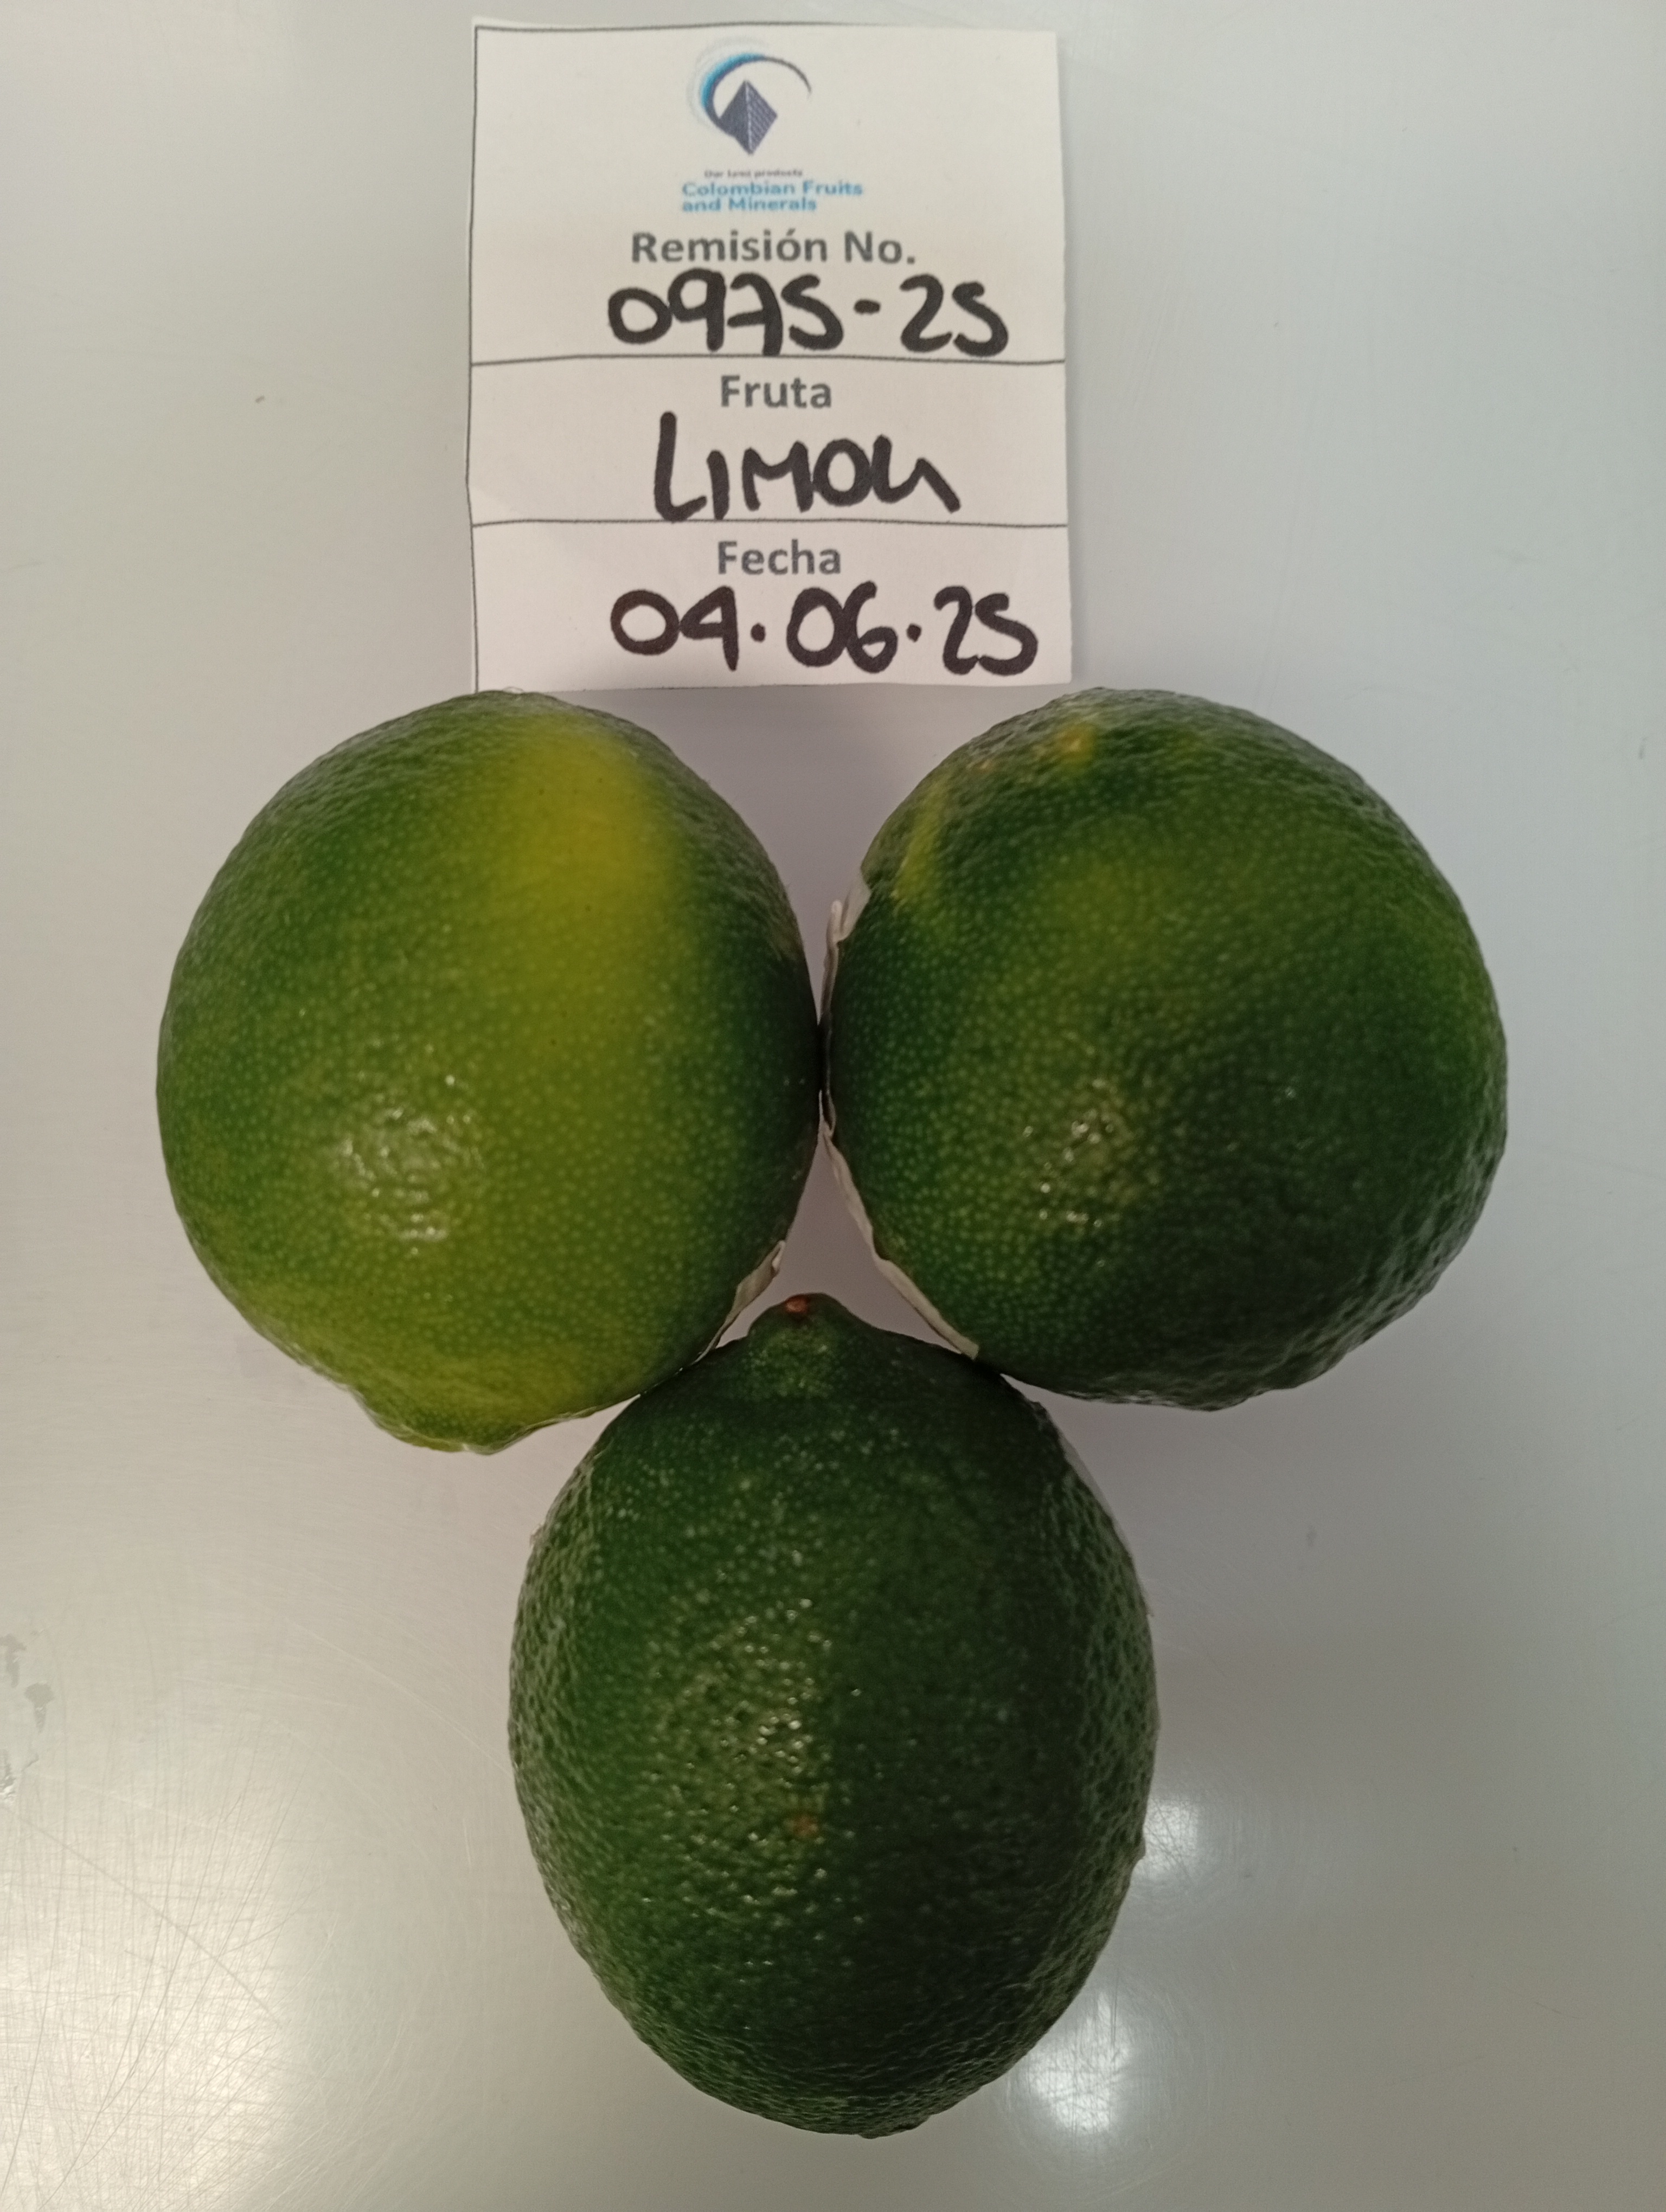 Our best products
Colombian Fruits
and Minerals
Remisión No.
0975-25
Fruta
LIMON
Fecha
04.06.25